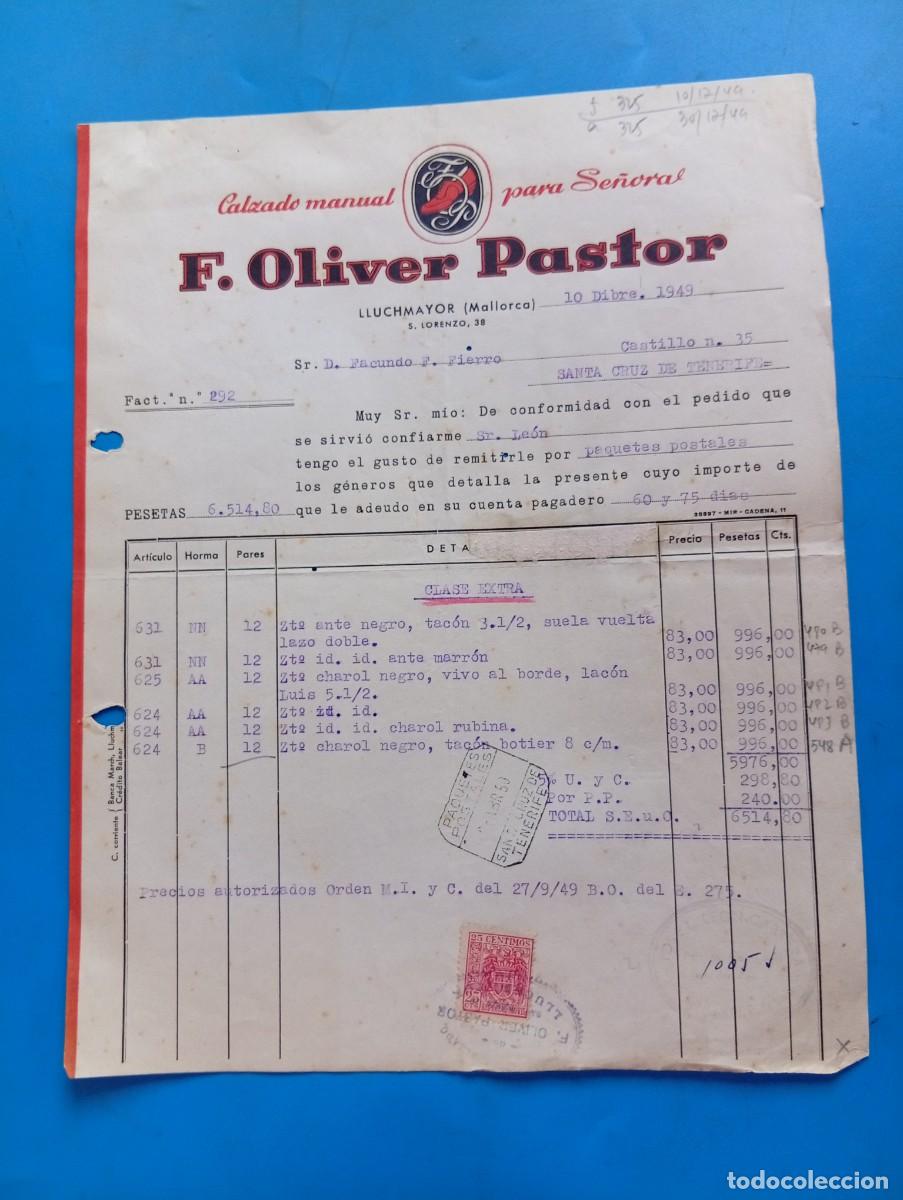 325 10/12/49
a 325 30/12/49
Calzado manual para Señora
F. Oliver Pastor
LLUCHMAYOR (Mallorca) 10 Dibre. 1949
S. LORENZO, 38
Sr. D. Facundo F. Fierro Castillo n. 35
SANTA CRUZ DE TENERIFE=
Fact.ª n.º 292
Muy Sr. mío: De conformidad con el pedido que
se sirvió confiarme Sr. León
tengo el gusto de remitirle por paquetes postales
los géneros que detalla la presente cuyo importe de
PESETAS 6.514,80 que le adeudo en su cuenta pagadero 60 y 75 dias
35897 - MIR - CADENA, 11
Artículo Horma Pares DETA Precio Pesetas Cts.
CLASE EXTRA
631 NN 12 Ztº ante negro, tacón 3.1/2, suela vuelta
lazo doble. 83,00 996,00 480 B
631 NN 12 Ztº id. id. ante marrón 83,00 996,00 479 B
625 AA 12 Ztº charol negro, vivo al borde, lacón
Luis 5.1/2. 83,00 996,00 481 B
624 AA 12 Ztº id. id. 83,00 996,00 482 B
624 AA 12 Ztº id. id. charol rubina. 83,00 996,00 483 B
624 B 12 Ztº charol negro, tacón botier 8 c/m. 83,00 996,00 548 A
5976,00
% U. y C. 298,80
Por P.P. 240.00
TOTAL S.E.u.O. 6514,80
PAQUETES
POSTALES
50
SANTA CRUZ DE
TENERIFE
C. corriente Banca March, Lluchm
Crédito Balear
Precios autorizados Orden M.I. y C. del 27/9/49 B.O. del E. 275.
1005
25 CENTIMOS
25
F. OLIVER PASTOR
LLUC
X
todocoleccion